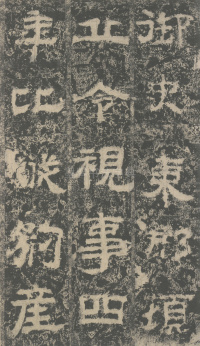 御史東郡頓
丘令視事四
年比縱豹產